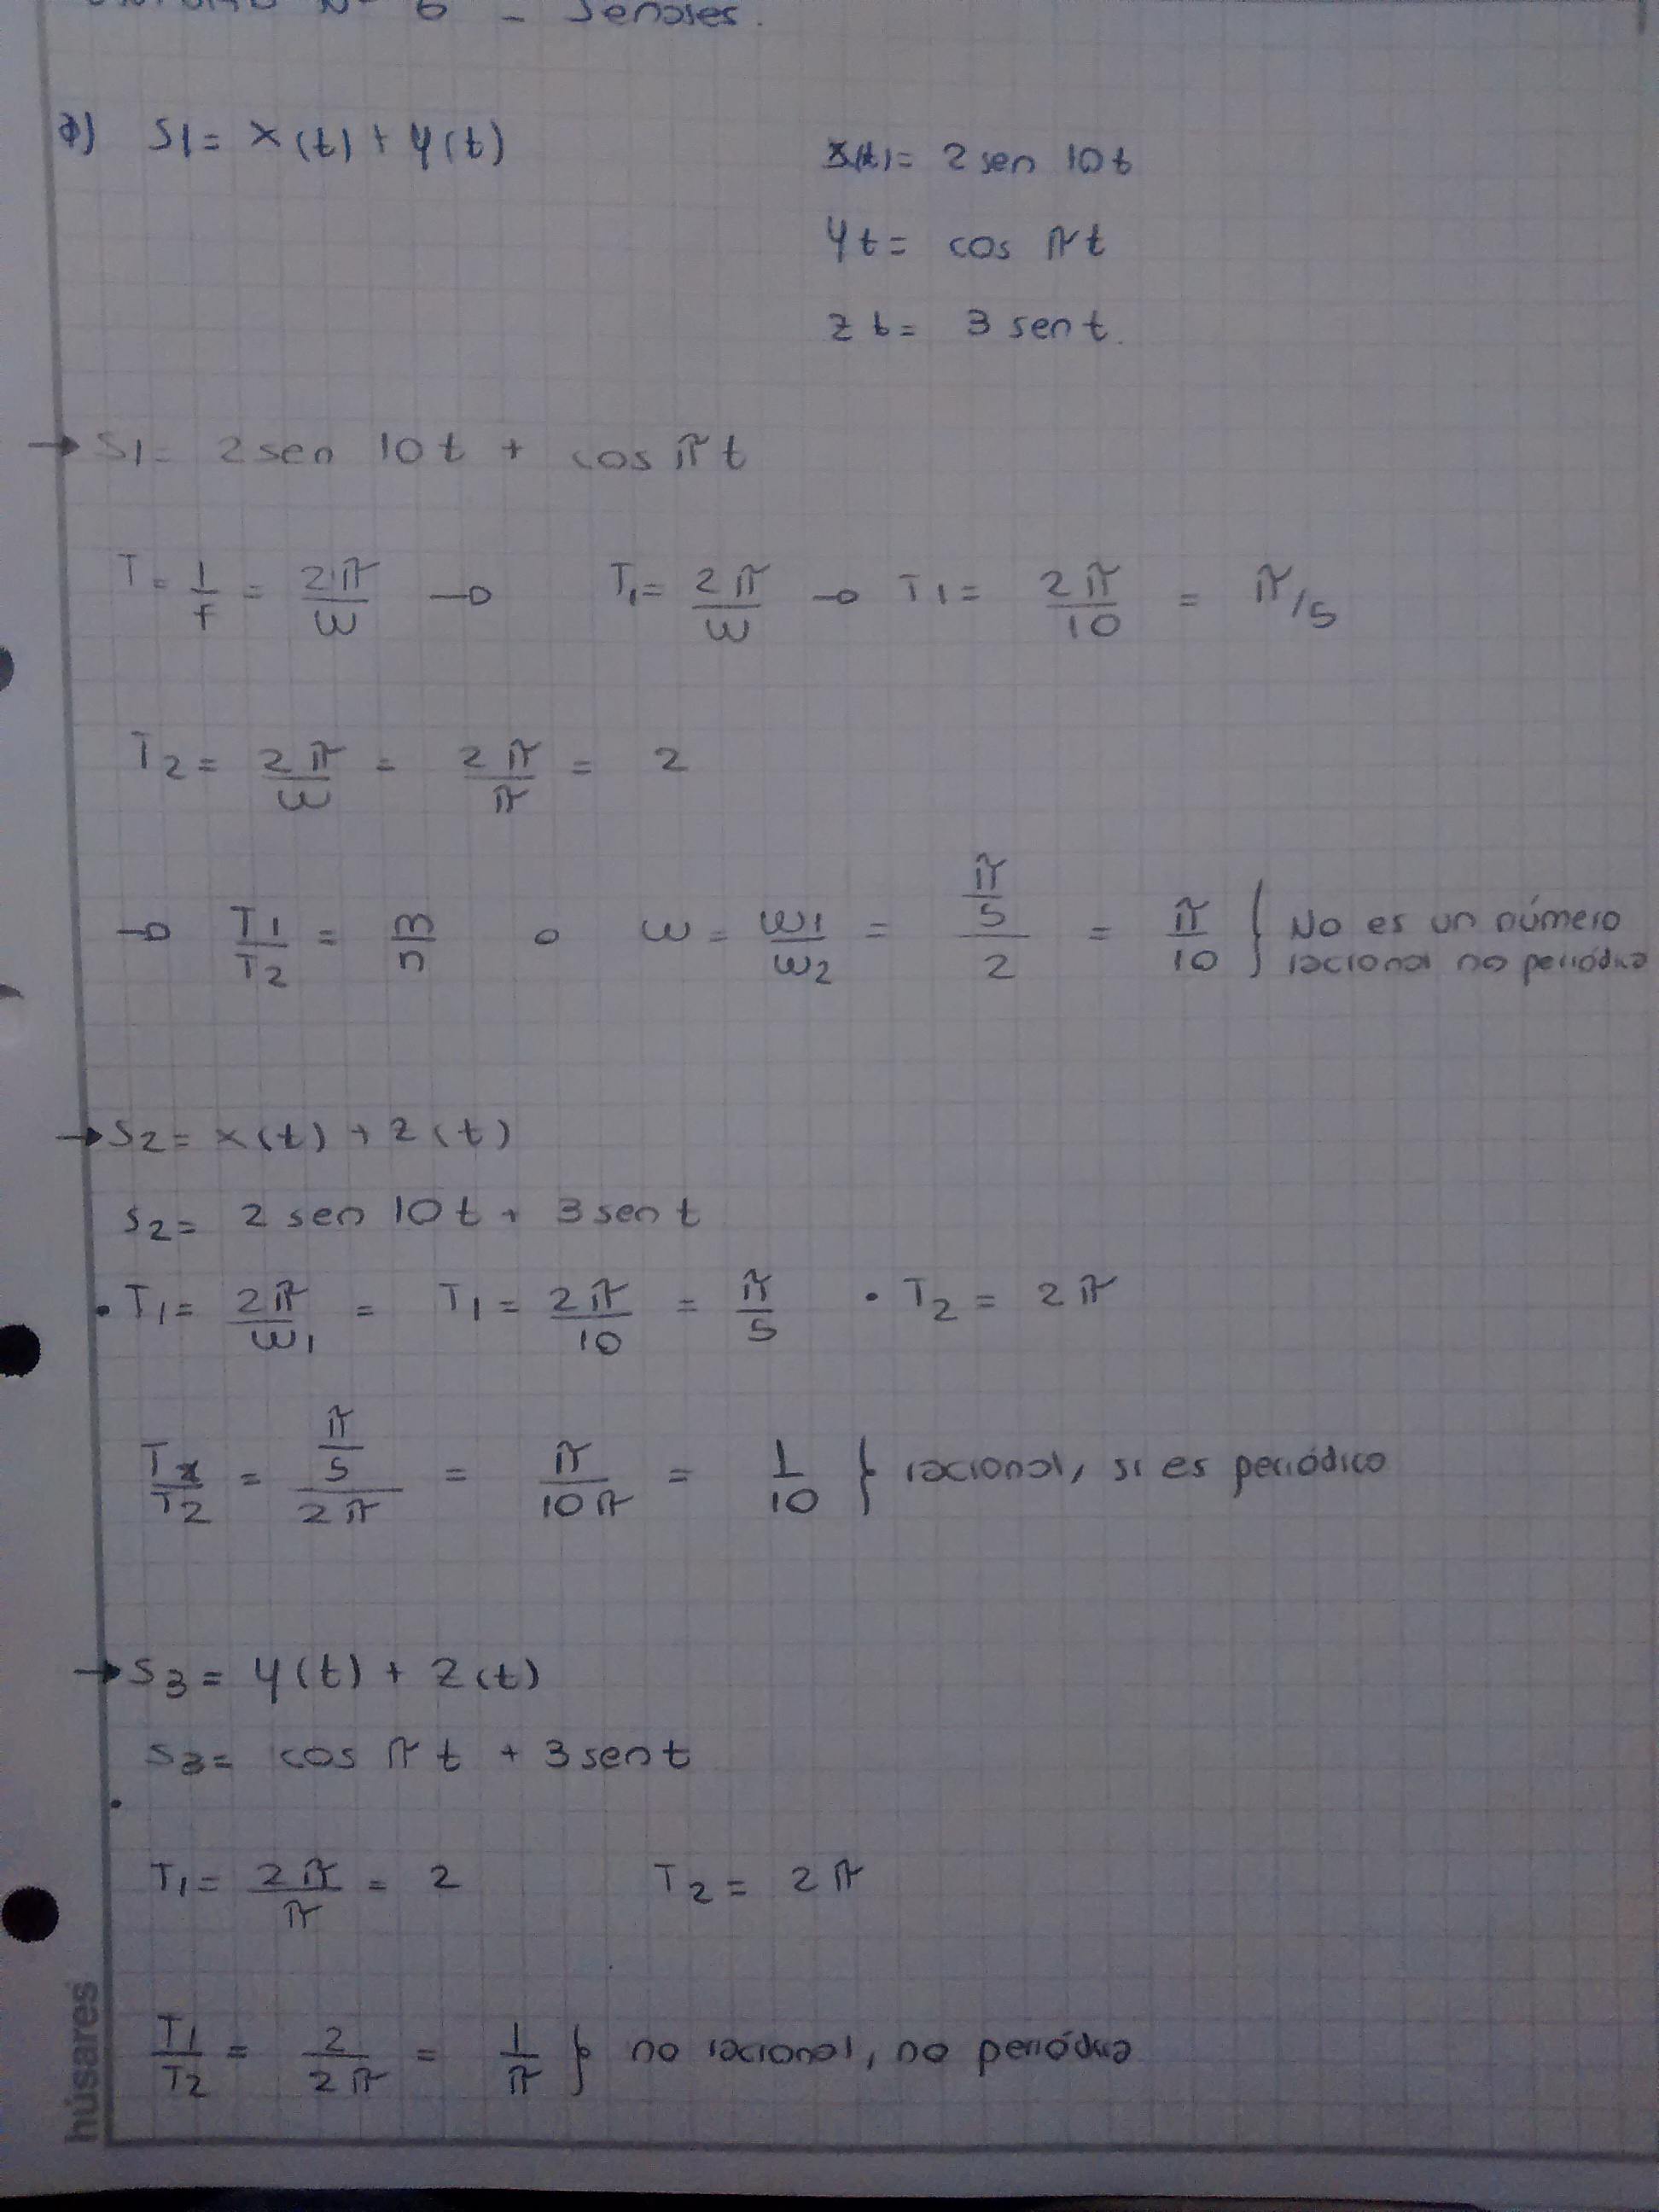 Nº 6 - Señales.
a) S1 = x(t) + y(t)
x(t) = 2 sen 10t
yt = cos πt
zt = 3 sen t.
→ S1 = 2 sen 10t + cos πt
T = 1/f = 2π/ω → T1 = 2π/ω → T1 = 2π/10 = π/5
T2 = 2π/ω = 2π/π = 2
→ T1/T2 = m/n o ω = ω1/ω2 = (π/5)/2 = π/10 } No es un número
racional no periódica
→ S2 = x(t) + z(t)
S2 = 2 sen 10t + 3 sen t
• T1 = 2π/ω1 = T1 = 2π/10 = π/5 • T2 = 2π
T1/T2 = (π/5)/2π = π/10π = 1/10 } racional, si es periódico
→ S3 = y(t) + z(t)
S3 = cos πt + 3 sen t
T1 = 2π/π = 2 T2 = 2π
T1/T2 = 2/2π = 1/π } no racional, no periódica
húsares